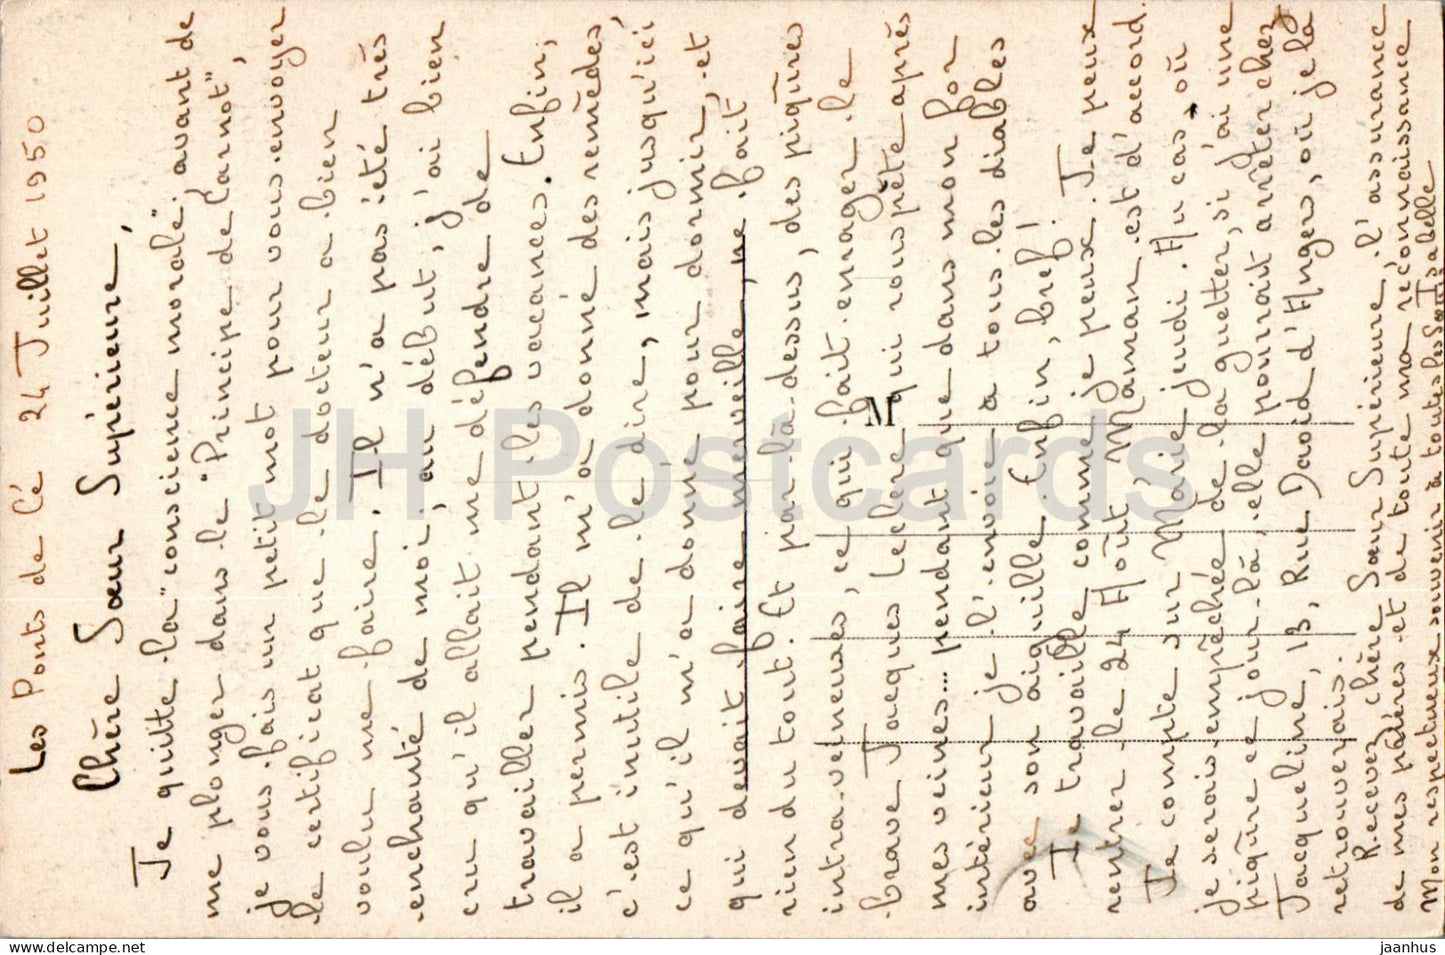 Les Ponts de Cé 24 Juillet 1950
Chère Sœur Supérieure,
Je quitte la "conscience morale", avant de
me plonger dans le "Principe de Carnot",
je vous fais un petit mot pour vous envoyer
le certificat que le docteur a bien
voulu me faire. Il n'a pas été très
enchanté de moi, au début, j'ai bien
cru qu'il allait me défendre de
travailler pendant les vacances. Enfin,
il a permis. Il m'a donné des remèdes,
c'est inutile de le dire, mais jusqu'ici
ce qu'il m'a donné pour dormir, et
qui devait faire merveille, ne fait
rien du tout. Et par là-dessus, des piqûres
intra-veineuses, ce qui fait enrager le
brave Jacques Leclerc qui rouspète après
mes veines... pendant que dans mon for
intérieur je l'envoie à tous les diables
avec son aiguille. Enfin, bref!
Je travaille comme je peux. Je peux
rentrer le 24 Août, Maman est d'accord.
Je compte sur Marie jeudi. Au cas où
je serais empêchée de la guetter, si j'ai une
piqûre ce jour-là, elle pourrait arrêter chez
Jacqueline, 13, Rue David d'Angers, où je la
retrouverais.
Recevez, chère Sœur Supérieure, l'assurance
de mes prières et de toute ma reconnaissance
Mon respectueux souvenir à toutes les Sœurs Isabelle
M
JH Postcards
jaanhus